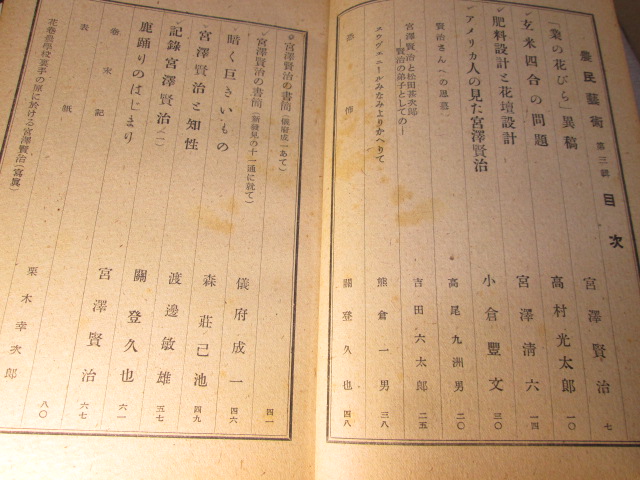 農民藝術 第三輯 目次
「業の花びら」異稿 宮澤賢治 七
玄米四合の問題 高村光太郎 一〇
肥料設計と花壇設計 宮澤清六 一四
アメリカ人の見た宮澤賢治 小倉豐文 三〇
賢治さんへの思慕 高尾九洲男 二〇
宮澤賢治と松田甚次郎 吉田六太郎 二五
―賢治の弟子としての―
エクヴェニールみなみよりかへりて 熊倉一男 三八
關登久也 四八
宮澤賢治の書簡(儀府成一あて) 四一
宮澤賢治の書簡(新發見の十一通に就て)
暗く巨きいもの 儀府成一 四六
宮澤賢治と知性 森莊已池 四九
記錄宮澤賢治(一) 渡邊敏雄 五七
鹿踊りのはじまり 關登久也 六一
卷末記 宮澤賢治 六七
表紙
花卷農學校裏手の原に於ける宮澤賢治(寫眞) 栗木幸次郎 八〇